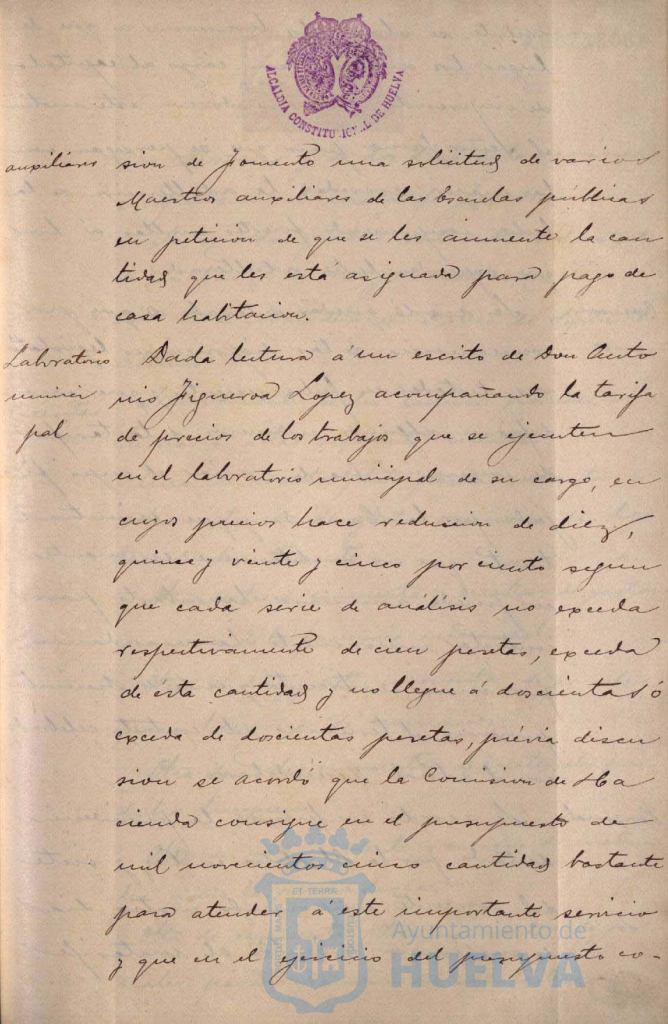 ALCALDIA CONSTITUCIONAL DE HUELVA
auxiliares
sion de Fomento una solicitud de varios
Maestros auxiliares de las Escuelas públicas
en peticion de que se les aumente la can
tidad que les está asignada para pago de
casa habitacion.
Laboratorio
munici
pal
Dada lectura á un escrito de Don Anto
nio Figueroa Lopez acompañando la tarifa
de precios de los trabajos que se ejecuten
en el laboratorio municipal de su cargo, en
cuyos precios hace reduccion de diez,
quince y veinte y cinco por ciento segun
que cada serie de análisis no exceda
respectivamente de cien pesetas, exceda
de ésta cantidad y no llegue á doscientas ó
exceda de doscientas pesetas, prévia discu
sion se acordó que la Comision de Ha
cienda consigne en el presupuesto de
mil novecientos cinco cantidad bastante
para atender á este importante servicio
y que en el ejercicio del presupuesto co-
ET TERRA
Ayuntamiento de
HUELVA